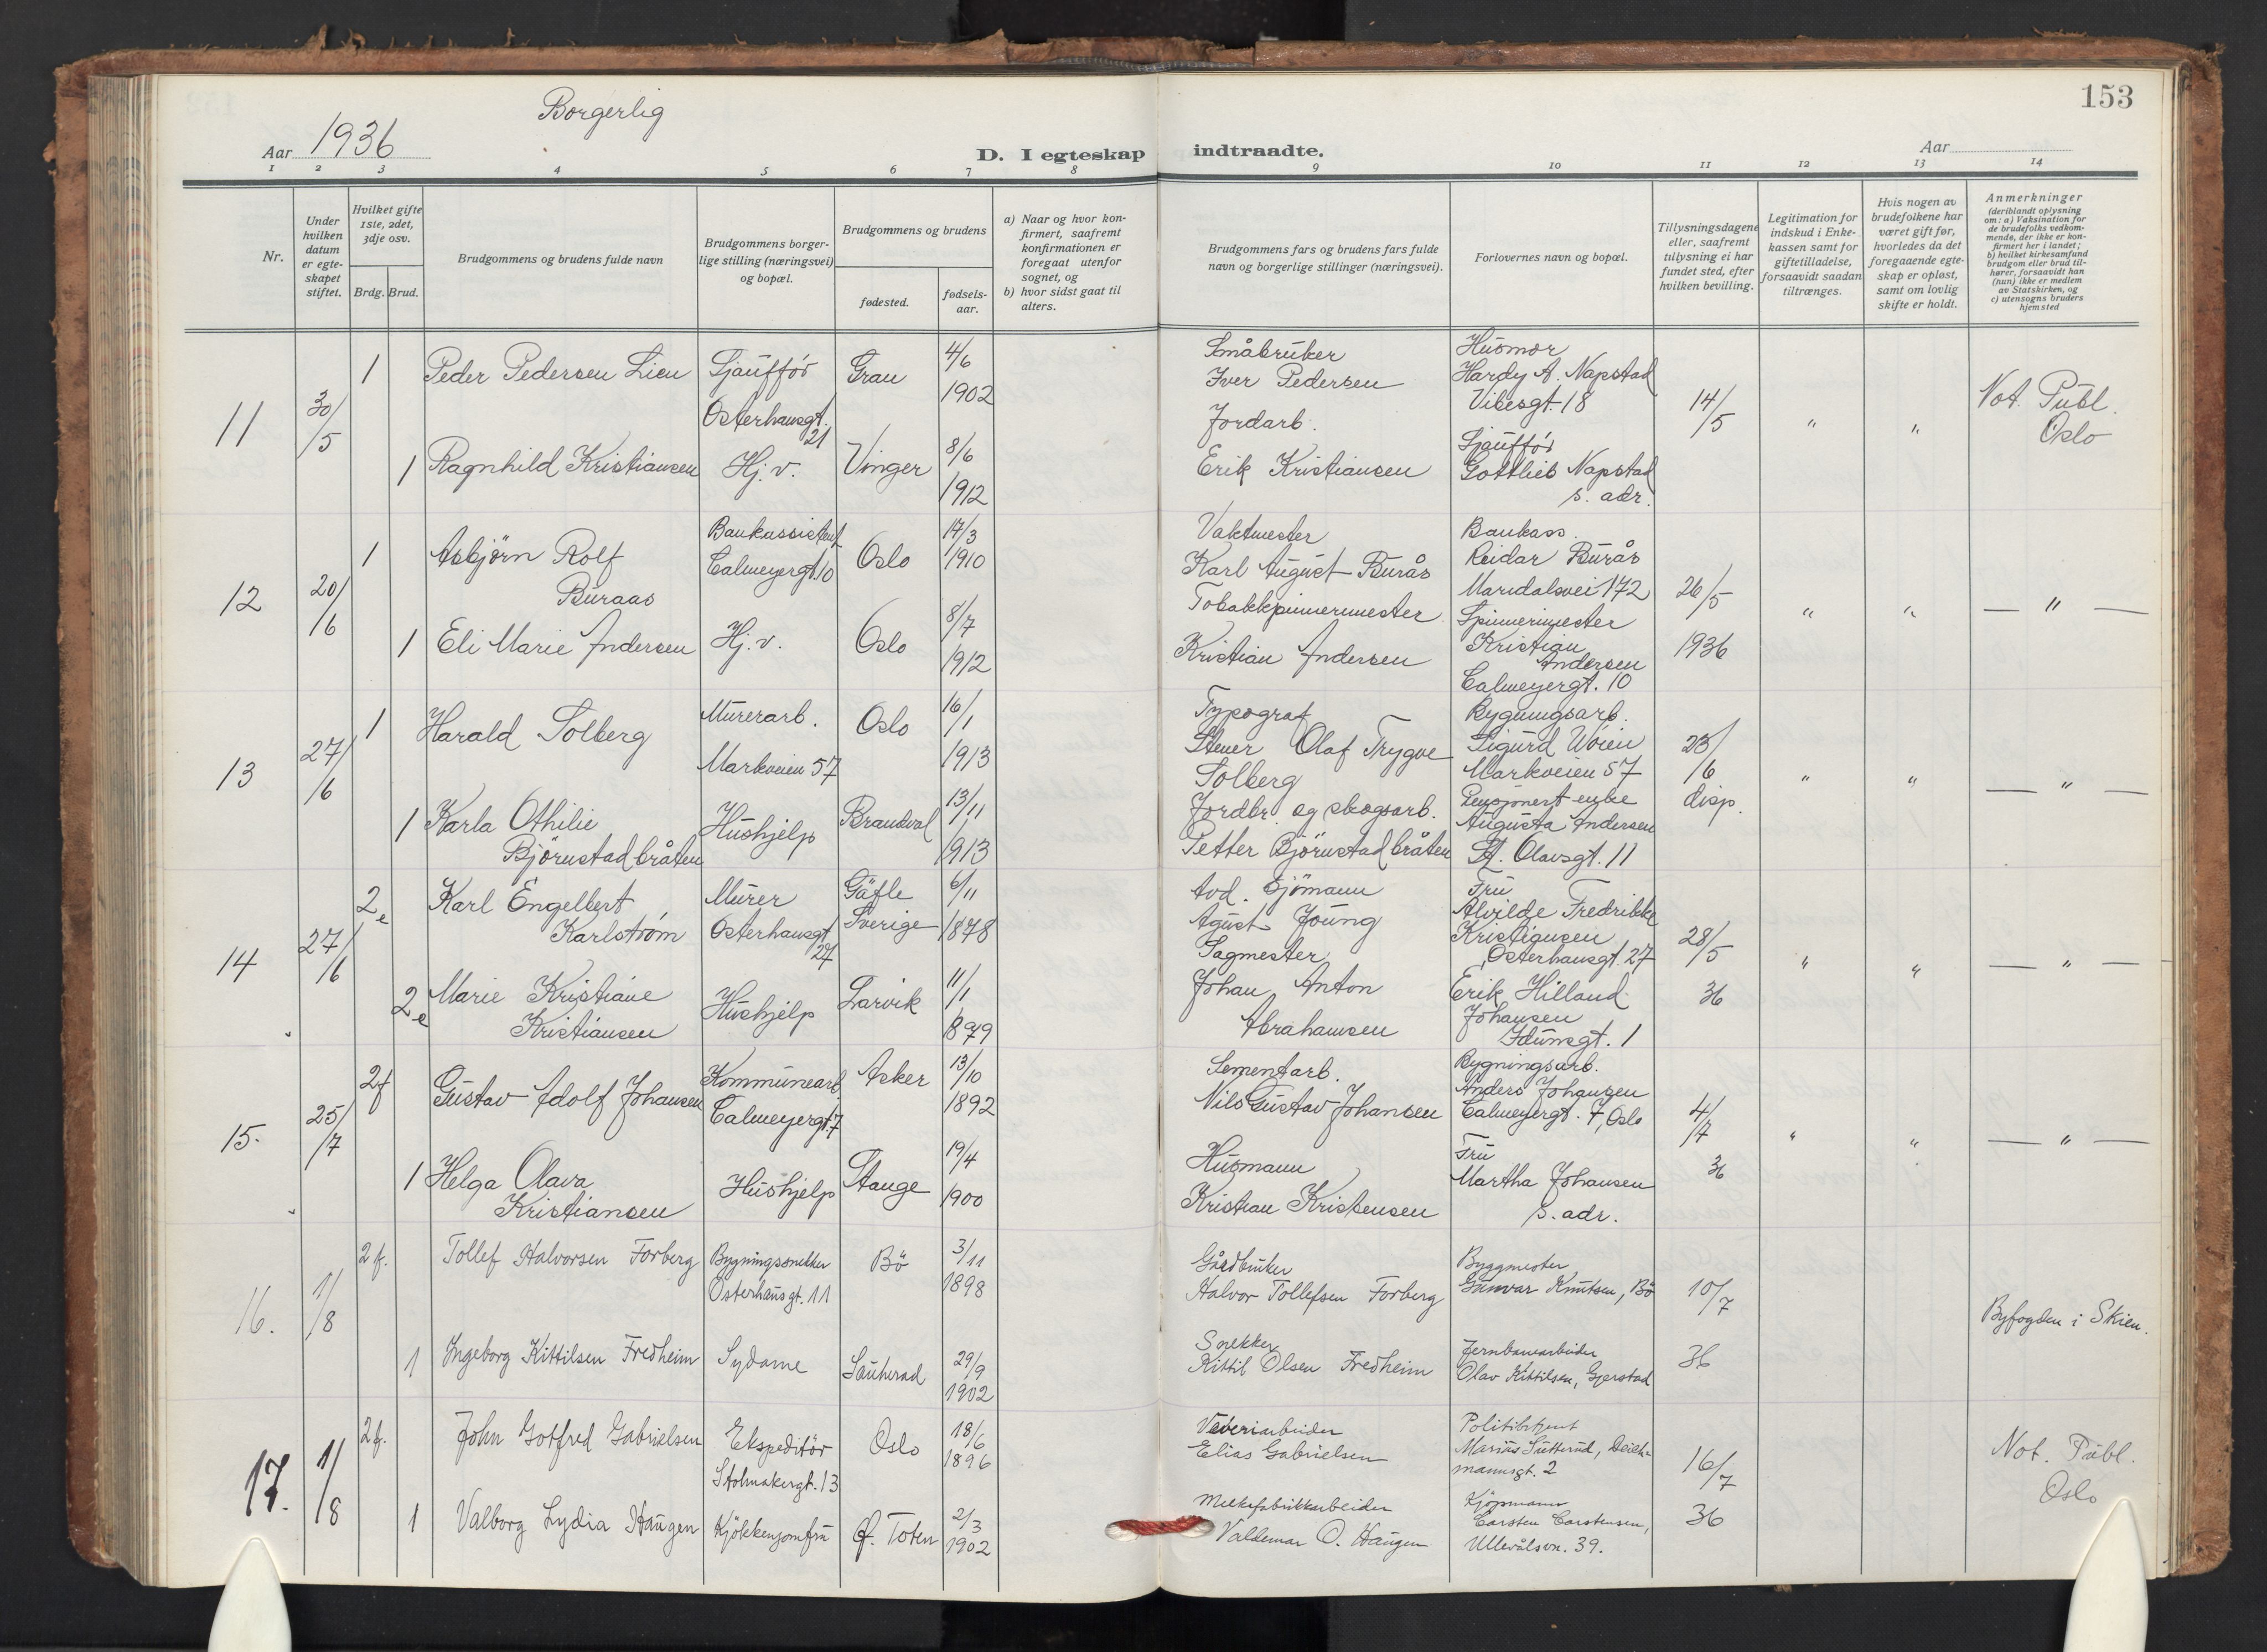 153
Borgerlig
Aar 1936
D. I egteskap indtraadte.
Aar
1 2 3 4 5 6 7 8 9 10 11 12 13 14
Nr.
Under hvilken datum er egteskapet stiftet.
Hvilket gifte 1ste, 2det, 3dje osv.
Brdg. Brud.
Brudgommens og brudens fulde navn
Brudgommens borgerlige stilling (næringsvei) og bopæl.
Brudgommens og brudens
fødested.
fødselsaar.
a) Naar og hvor konfirmert, saafremt konfirmationen er foregaat utenfor sognet, og
b) hvor sidst gaat til alters.
Brudgommens fars og brudens fars fulde navn og borgerlige stillinger (næringsvei).
Forlovernes navn og bopæl.
Tillysningsdagene eller, saafremt tillysning ei har fundet sted, efter hvilken bevilling.
Legitimation for indskud i Enkekassen samt for giftetilladelse, forsaavidt saadan tiltrænges.
Hvis nogen av brudefolkene har været gift før, hvorledes da det foregaaende egteskap er opløst, samt om lovlig skifte er holdt.
Anmerkninger (deriblandt oplysning om: a) Vaksination for de brudefolks vedkommende, der ikke er konfirmert her i landet; b) hvilket kirkesamfund brudgom eller brud tilhører, forsaavidt han (hun) ikke er medlem av Statskirken, og c) utensogns bruders hjemsted
11 30/5
1 Peder Pedersen Lien
Sjauffør
Osterhausgt. 21
Grau
4/6 1902
Småbruker
Iver Pedersen
Husmor
Hardy A. Napstad
Vibesgt. 18
14/5 " "
Not. Publ. Oslo
1 Ragnhild Kristiansen
Hj. v.
Vinger
8/6 1912
Jordarb.
Erik Kristiansen
Sjauffør
Gottlieb Napstad
s. adr.
12 20/6
1 Asbjørn Rolf
Buraas
Bankassistent
Calmeyergt. 10
Oslo
17/3 1910
Vaktmester
Karl August Burås
Bankass.
Reidar Burås
Maridalsvei 172
26/5 1936 " " — " —
1 Eli Marie Andersen
Hj. v.
Oslo
8/7 1912
Tobakkpinnermester
Kristian Andersen
Spinnerimester
Kristian
Andersen
Calmeyergt. 10
13 27/6
1 Harald Solberg
Murerarb.
Markveien 57
Oslo
16/1 1913
Typograf
Olaf Trygve
Solberg
Bygningsarb.
Sigurd Woien
Markveien 57
23/6 disp. " " — " —
1 Karla Othilie
Björnstadbråten
Hushjelp
Brandval
13/11 1913
Jordbr. og skogsarb.
Petter Björnstadbråten
Pensjonert enke
Augusta Andersen
St. Olavsgt. 11
14 27/6
2e Karl Engelbert
Karlstrøm
Murer
Osterhausgt. 27
Gäfle
Sverige
6/11 1878
Avd. Sjömann
Agust Joung
Fru
Alvilde Fredrikke
Kristiansen
Osterhausgt. 27
28/5 36 " " — " —
2e Marie Kristiane
Kristiansen
Hushjelp
Larvik
11/1 1879
Sagmester
Johan Anton
Abrahamsen
Erik Hilland
Johansen
Idunsgt. 1
15. 25/7
2f Gustav Adolf Johansen
Kommunearb.
Calmeyergt. 7
Asker
13/10 1892
Sementarb.
Nils Gustav Johansen
Bygningsarb.
Anders Johansen
Calmeyergt. 7, Oslo
4/7 36 " " — " —
1 Helga Olava
Kristiansen
Hushjelp
Stange
19/4 1900
Husmann
Kristian Kristensen
Fru
Martha Johansen
s. adr.
16. 1/8
2 f. Tollef Halvorsen Forberg
Bygningssnekker
Osterhausgt. 11
Bö
3/11 1898
Gårdbruker
Halvor Tollefsen Forberg
Byggmester
Gunvar Knutsen, Bö
10/7 36
Byfogden i Skien.
1 Ingeborg Kittilsen Fredheim
Sydame
Sauherad
29/9 1902
Snekker
Kittil Olsen Fredheim
Jernbanearbeider
Olav Kittilsen, Gjerstad
17. 1/8
2 f. John Gotfred Gabrielsen
Ekspeditör
Stolmakergt. 13
Oslo
18/6 1896
Væveriarbeider
Elias Gabrielsen
Politibetjent
Marius Sutterud, Deich-
mannsgt. 2
16/7 36
Not. Publ. Oslo
1 Valborg Lydia Haugen
Kjøkkenjomfru
Ø. Toten
2/3 1902
Melkefabrikkarbeider
Valdemar O. Haugen
Kjöpmann
Carsten Carstensen,
Ullevålsvn. 39.